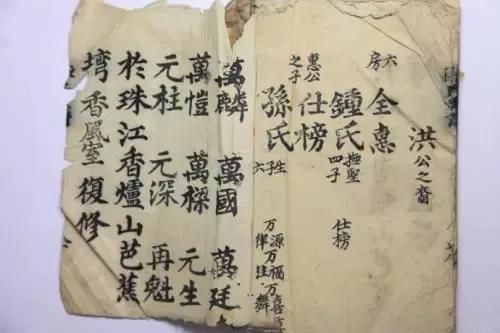 洪公之裔
六房
全惠
鍾氏 四子 仕榜
惠公之子
仕榜
孫氏 生子六 万源万福万喜
萬麟 萬國 萬廷
萬愷 萬樑 元生
元柱 元深 再魁
於珠江香爐山芭蕉
塆香風室復修